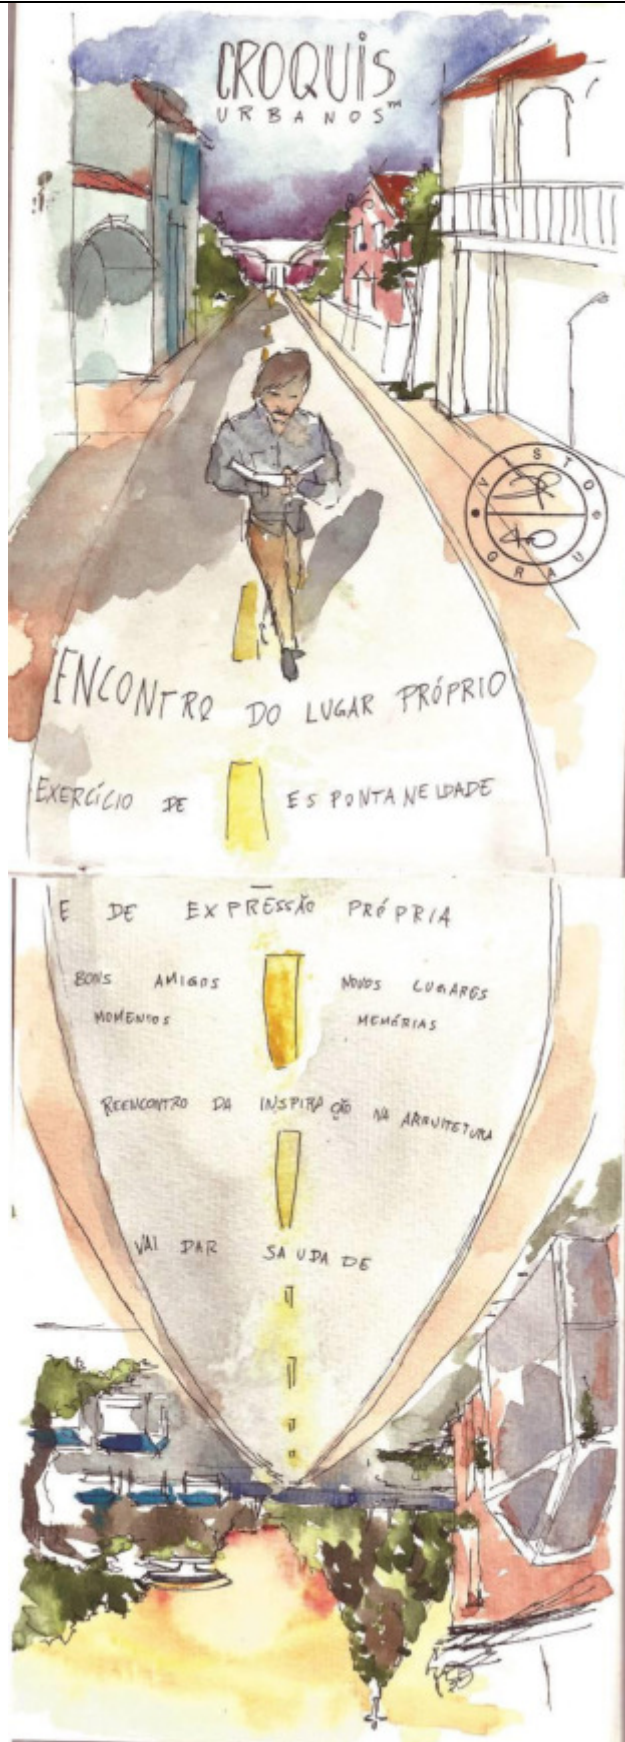 CROQUIS
URBANOS™
VISTO
GRAU
ENCONTRO DO LUGAR PRÓPRIO
EXERCÍCIO DE ESPONTANEIDADE
E DE EXPRESSÃO PRÓPRIA
BONS AMIGOS NOVOS LUGARES
MOMENTOS MEMÓRIAS
REENCONTRO DA INSPIRAÇÃO NA ARQUITETURA
VAI DAR SAUDADE